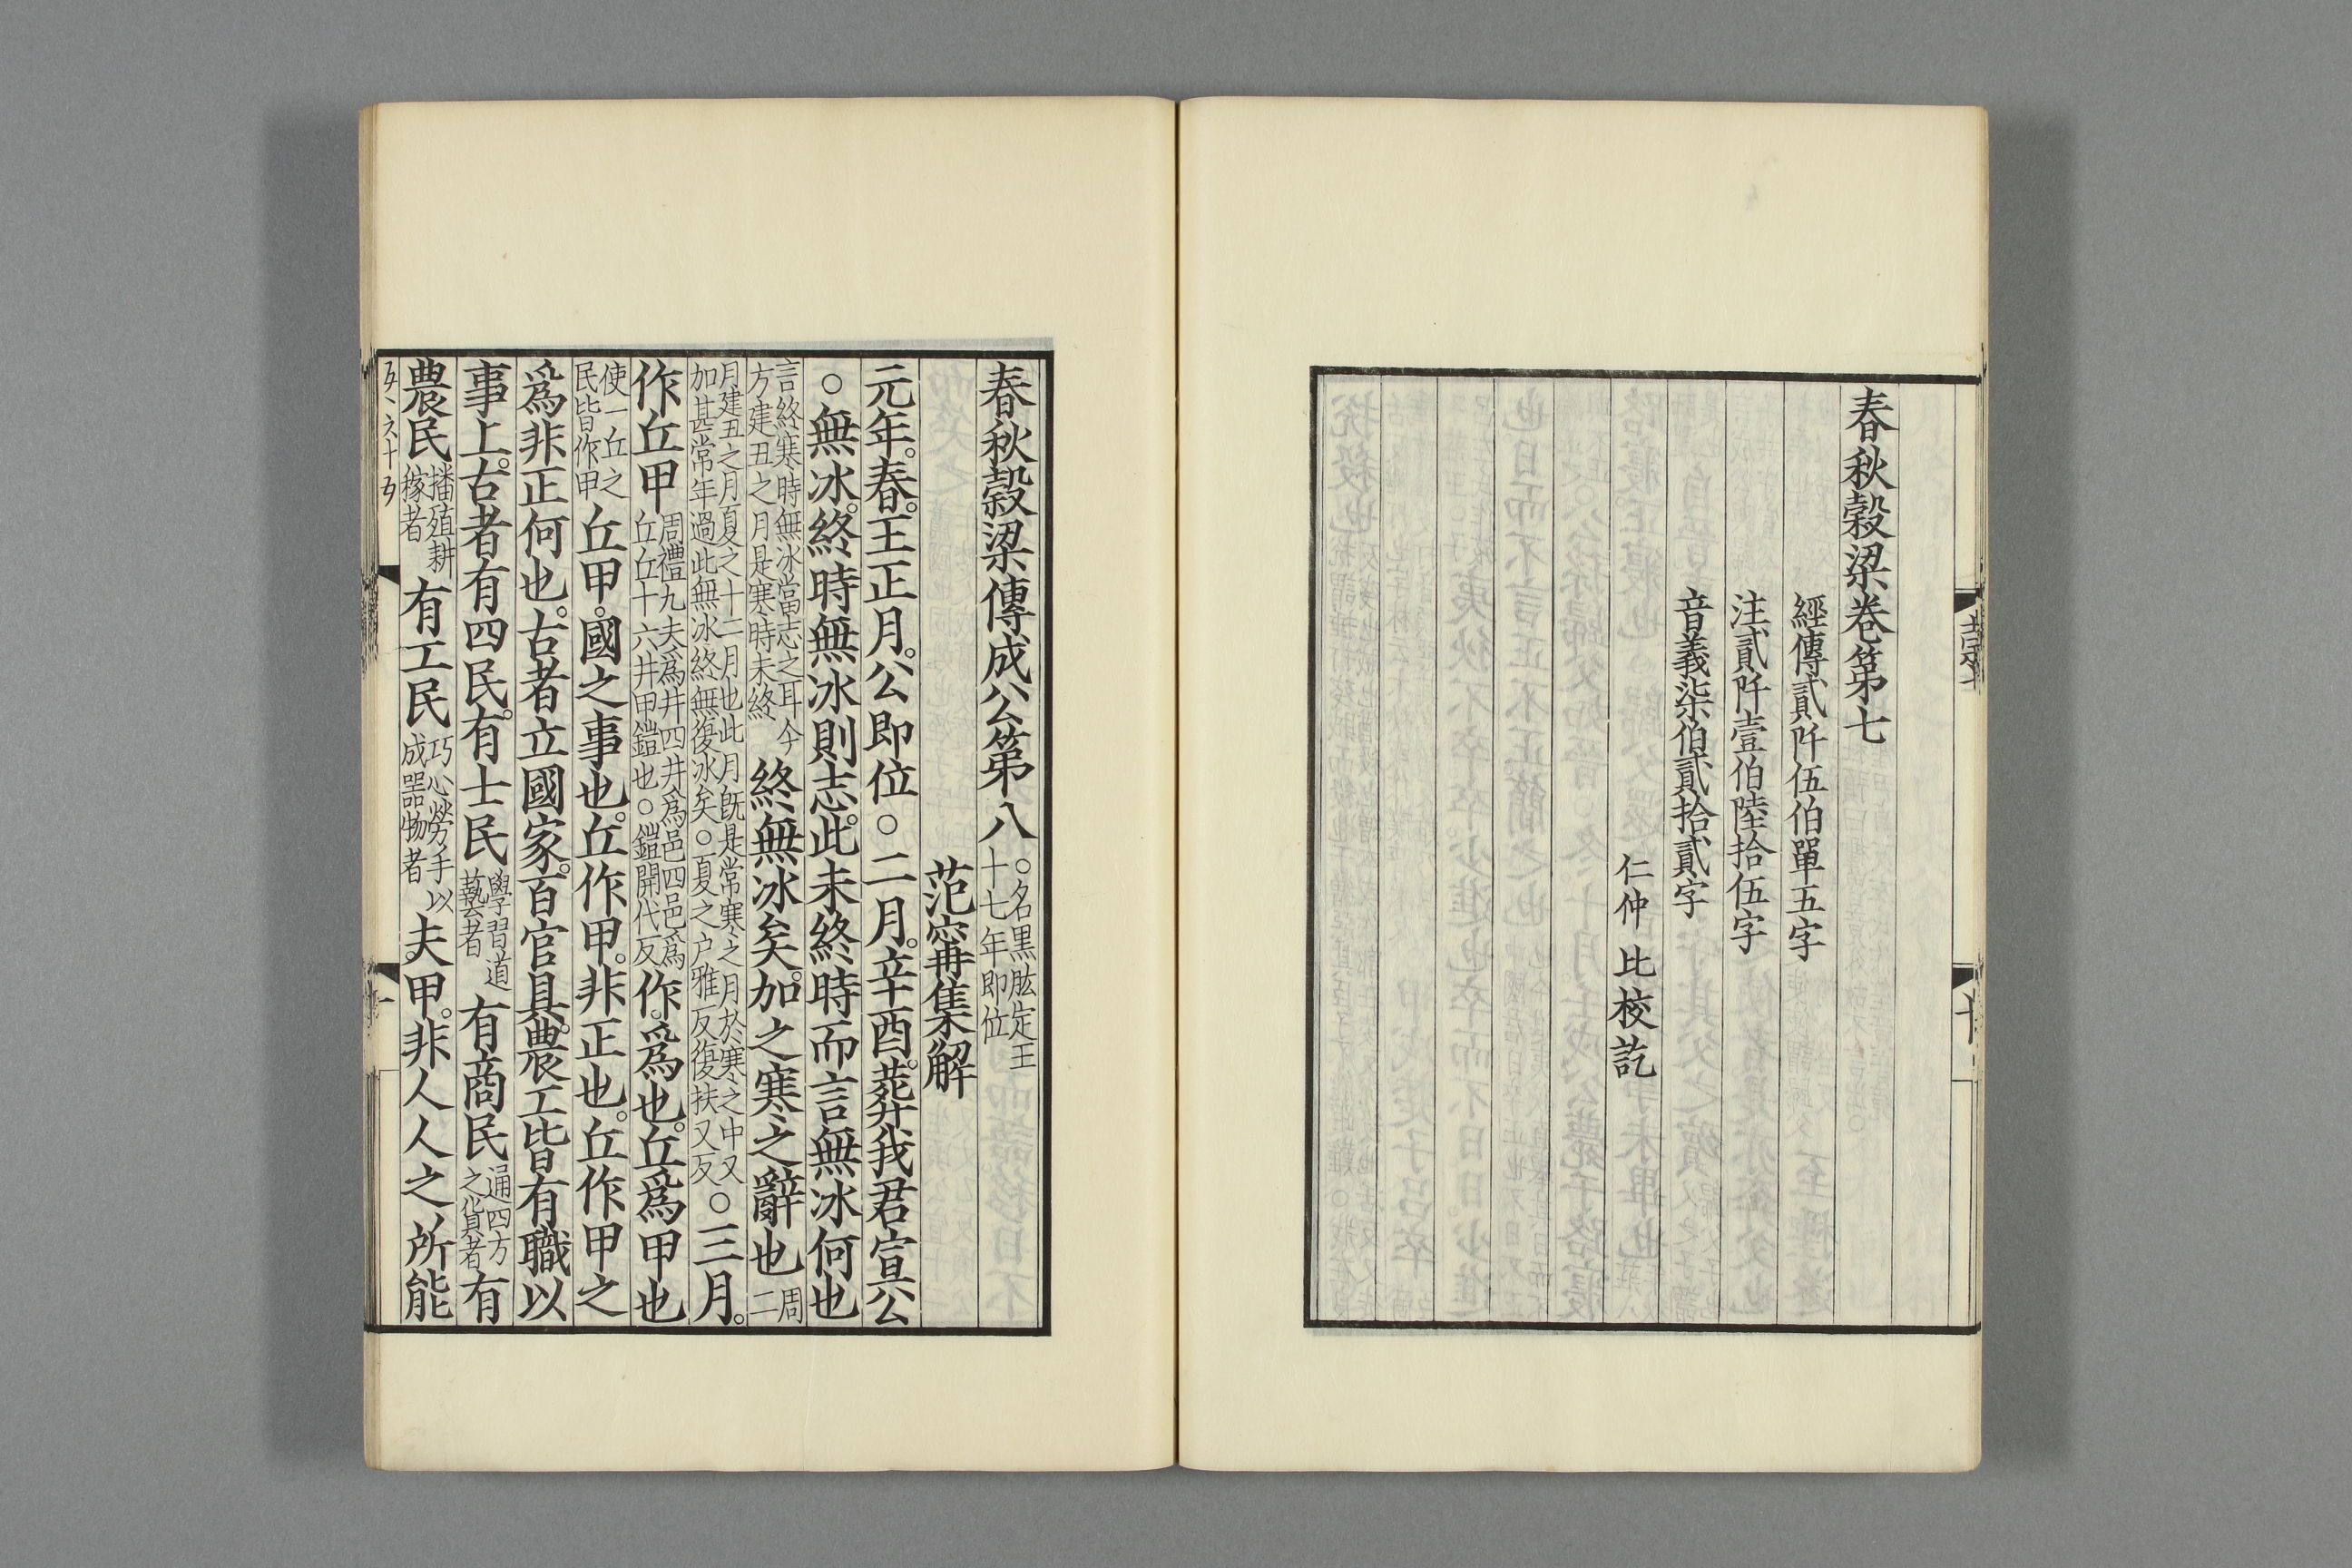 春秋穀梁卷第七
經傳貳阡伍伯單五字
注貳阡壹伯陸拾伍字
音義柒伯貳拾貳字
仁仲比校訖
春秋穀梁傳成公第八○名黑肱定王十七年即位
范甯集解
元年。春。王正月。公即位○二月。辛酉。葬我君宣公
○無冰。終時無冰則志。此未終時而言無冰何也
言終寒時無冰當志之耳今方建丑之月是寒時未終終無冰矣。加之寒之辭也周二
月建丑之月夏之十二月也此月旣是常寒之月於寒之中又加甚常年過此無冰終無復冰矣○夏之户雅反復扶又反○三月。
作丘甲周禮九夫爲井四井爲邑四邑爲丘丘十六井甲鎧也○鎧開代反作。爲也。丘爲甲也
使一丘之民皆作甲丘甲。國之事也。丘作甲。非正也。丘作甲之
爲非正何也。古者立國家。百官具。農工皆有職以
事上。古者有四民。有士民學習道藝者有商民通四方之貨者有
農民播殖耕稼者有工民巧心勞手以成器物者夫甲。非人人之所能